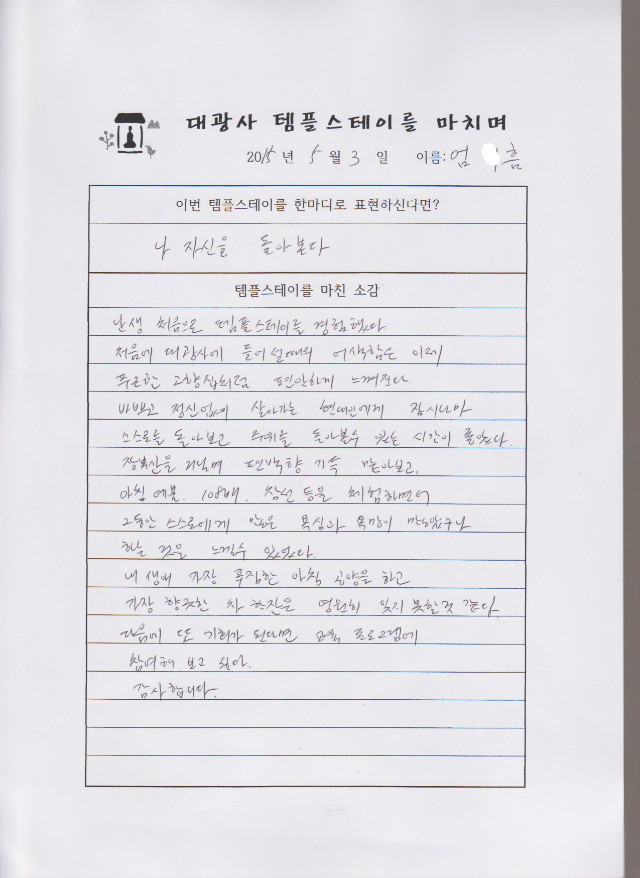 대광사 템플스테이를 마치며
2015 년 5 월 3 일 이름: 엄 흠
이번 템플스테이를 한마디로 표현하신다면?
나 자신을 돌아본다
템플스테이를 마친 소감
난생 처음으로 템플스테이를 경험했다
처음에 대광사에 들어설때의 어색함은 이제
푸근한 고향집처럼 편안하게 느껴진다.
바쁘고 정신없이 살아가는 현대인에게 잠시나마
스스로를 돌아보고 주위를 돌아볼수 있는 시간이 좋았다.
거닐며 편백향 가득 맡아보고,
아침 예불, 108배, 참선 등을 체험하면서
그동안 스스로에게 않은 욕심과 욕망이 많았구나
하는 것을 느낄수 있었다.
내 생애 가장 푸짐한 아침 식양을 하고
가장 향긋한 차 한잔은 영원히 잊지 못할것 같다.
다음에 또 기회가 된다면 교육 프로그램에
참여해 보고 싶다.
감사합니다.